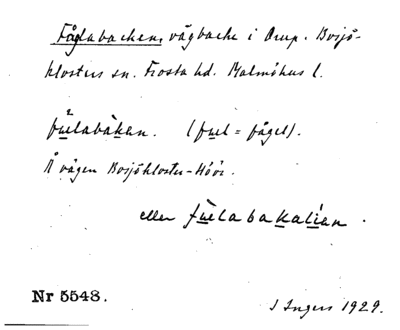 Fågelabacken, vägbacke i Orup. Bosjö-
klosters sn. Frosta hd. Malmöhus l.
fúelabákan. (fuel = fågel).
Å vägen Bosjökloster-Höör.
eller fúelabakalían.
Nr 5548.
I Ingers 1929.